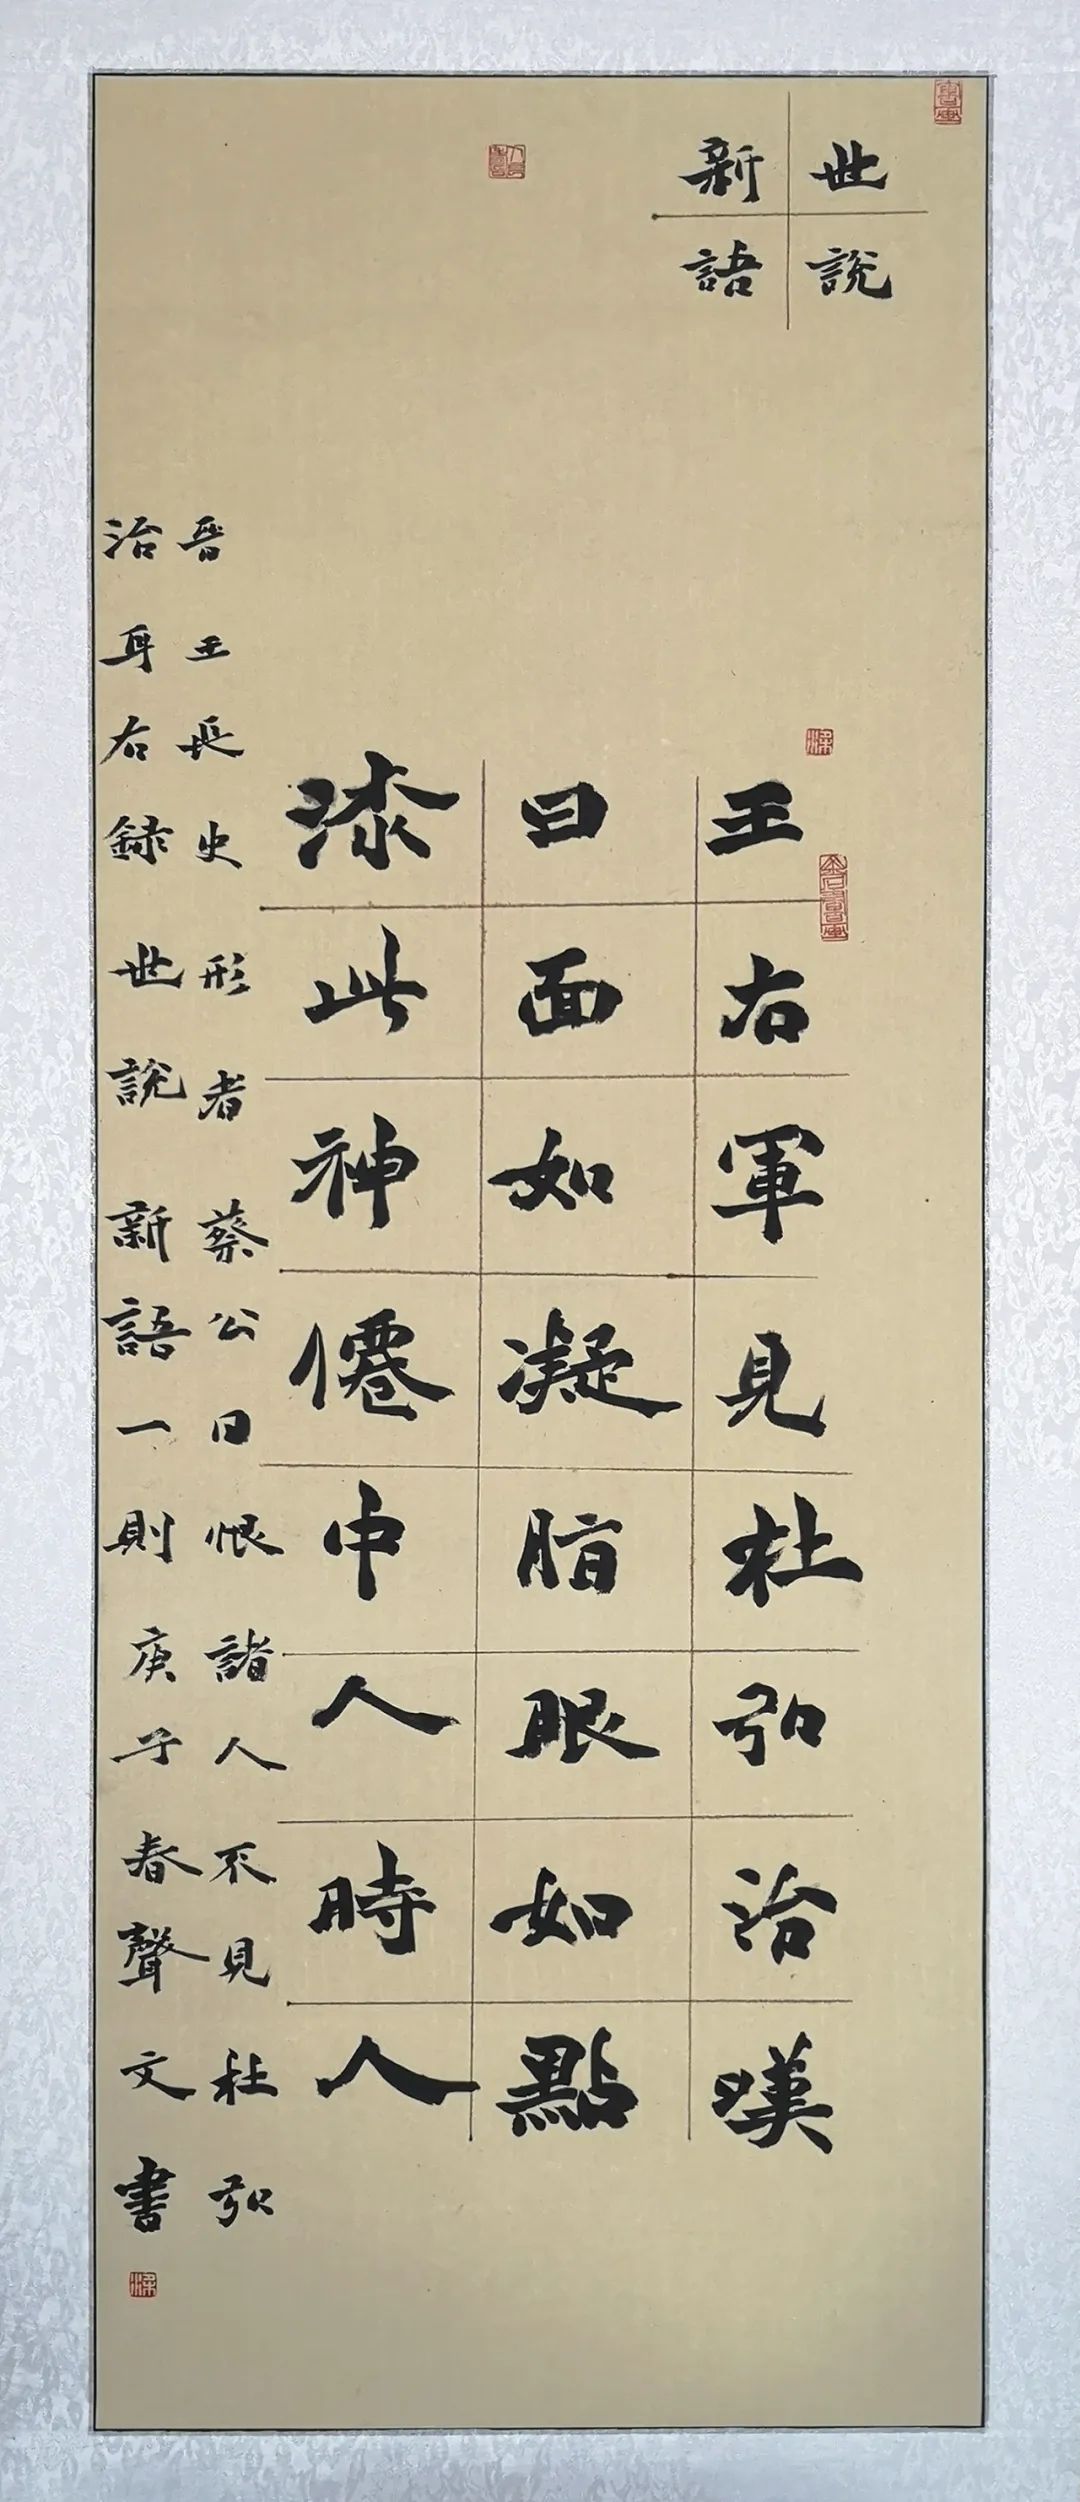 世說
新語
王右軍見杜弘治嘆
曰面如凝脂眼如點
漆此神僊中人時人
晉王長史形者蔡公曰恨諸人不見杜弘
治耳右録世說新語一則庚子春聲文書